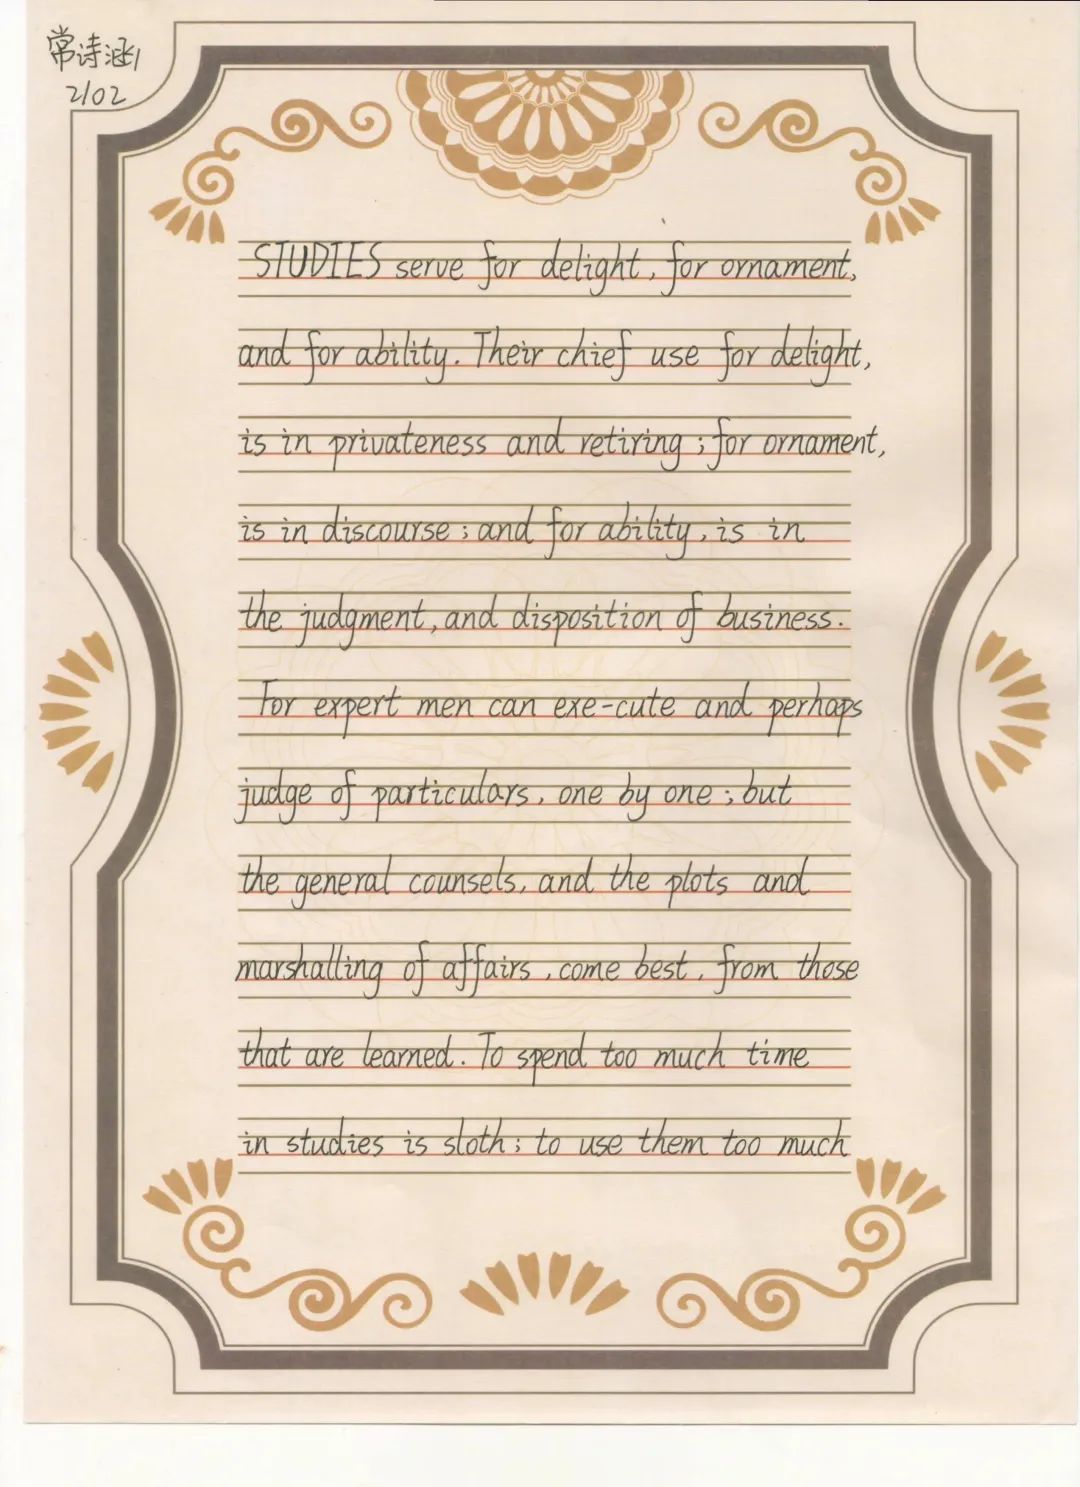 常诗涵
2102
STUDIES serve for delight, for ornament,
and for ability. Their chief use for delight,
is in privateness and retiring; for ornament,
is in discourse; and for ability, is in
the judgment, and disposition of business.
For expert men can exe-cute and perhaps
judge of particulars, one by one; but
the general counsels, and the plots and
marshalling of affairs, come best, from those
that are learned. To spend too much time
in studies is sloth; to use them too much